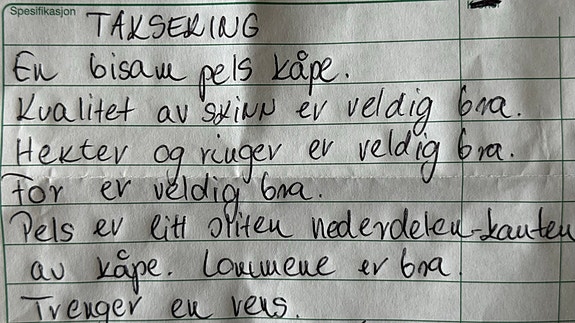 Spesifikasjon
TAKSERING
En bisam pels kåpe.
Kvalitet av SKINN er veldig bra.
Hekter og ringer er veldig bra.
For er veldig bra.
Pels er litt sliten nederdelen-kanten
av kåpe. Lommene er bra.
Trenger en rens.